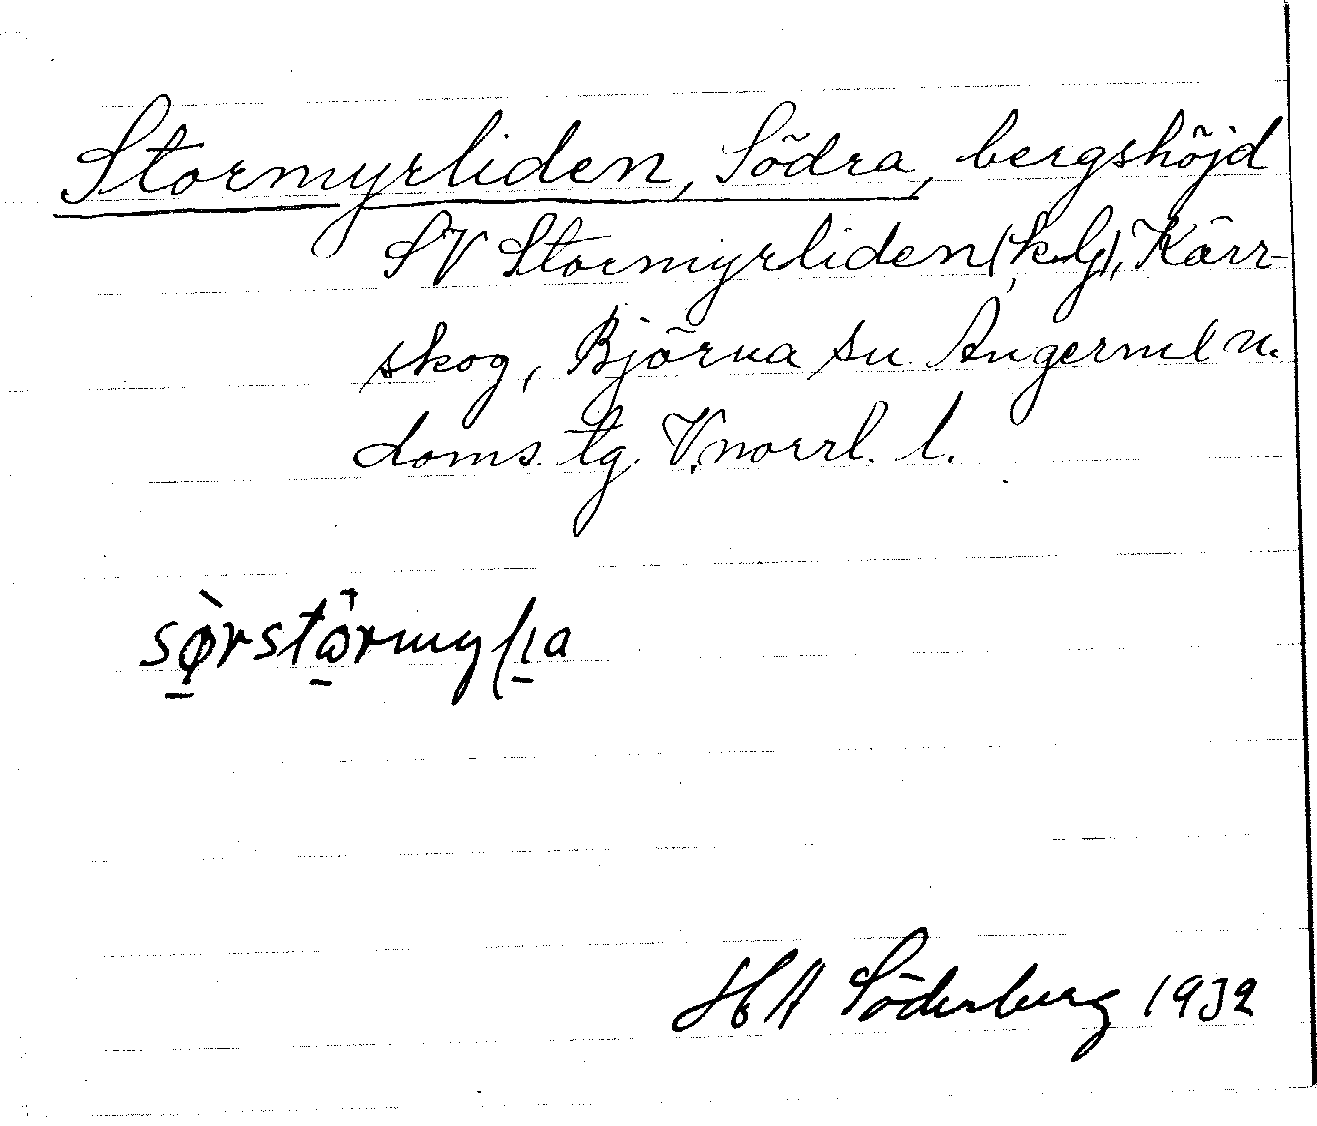 Stormyrliden, Södra, bergshöjd
SV Stormyrliden (k.G), Kärr-
skog, Björna sn Ångerml n.
doms. tg. V.norrl. l.
sø̀rstǫ̂rmyſıa
HA Söderberg 1932